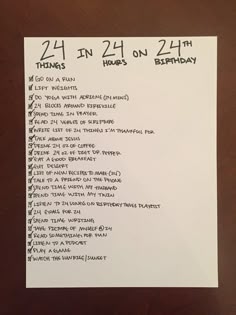 24 THINGS IN 24 HOURS ON 24TH BIRTHDAY
GO ON A RUN
LIFT WEIGHTS
DO YOGA WITH ADRIENE (24 MINS)
24 BLOCKS AROUND
SPEND TIME IN PRAYER
READ 24 VERSES OF SCRIPTURE
WRITE LIST OF 24 THINGS I'M THANKFUL FOR
TALK ABOUT JESUS
DRINK 24 OZ OF COFFEE
DRINK 24 OZ OF DIET DR. PEPPER
EAT A GOOD BREAKFAST
EAT DESSERT
LIST OF NEW RECIPES TO MAKE
TALK TO A FRIEND ON THE PHONE
SPEND TIME WITH MY HUSBAND
SPEND TIME WITH MY TWIN
LISTEN TO 24 SONGS ON BIRTHDAY TUNES PLAYLIST
24 GOALS FOR 24
SPEND TIME WRITING
TAKE PICTURE OF MYSELF @ 24
READ SOMETHING FOR FUN
LISTEN TO A PODCAST
PLAY A GAME
WATCH THE SUNRISE/SUNSET